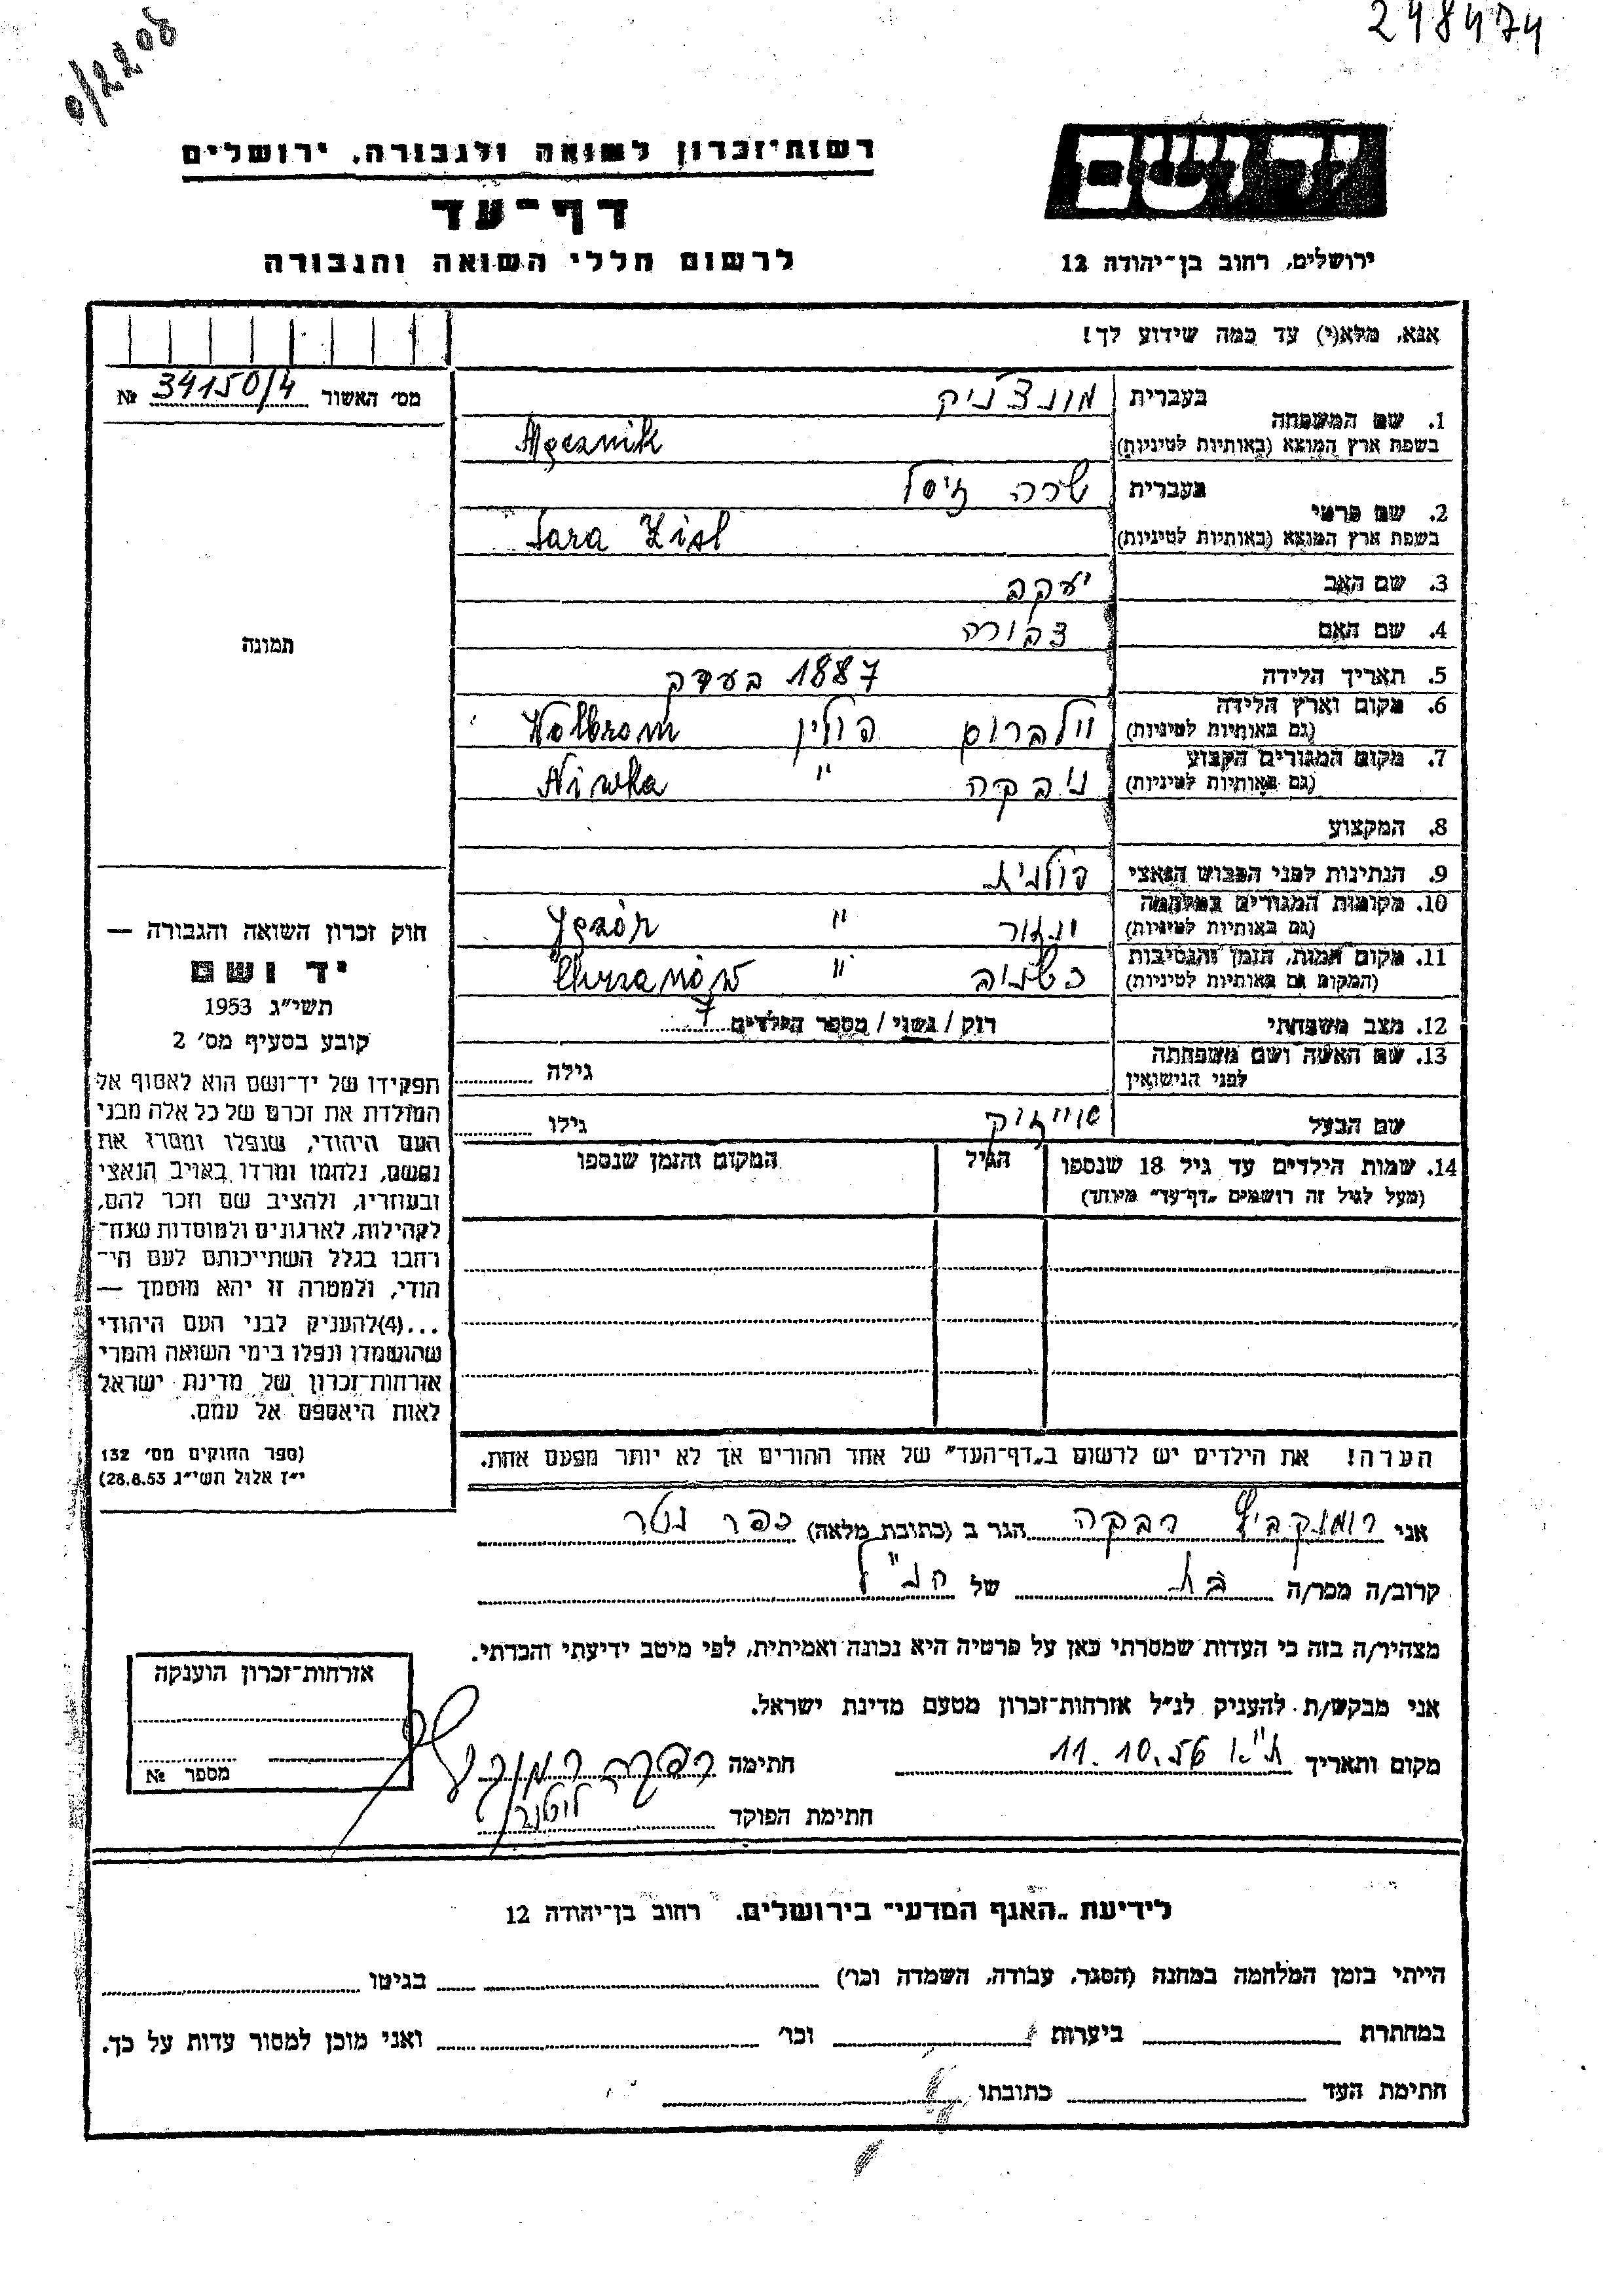 248474
0/2208
יד ושם
ירושלים, רחוב בן־יהודה 12
רשות־זכרון לשואה ולגבורה, ירושלים
דף־עד
לרשום חללי השואה והגבורה
אנא, מלא(י) עד כמה שידוע לך!
מס׳ האשור 34150/4 №
תמונה
1. שם המשפחה בעברית מונצ'ניק
בשפת ארץ המוצא (באותיות לטיניות) Męcznik
2. שם פרטי בעברית שרה זיסל
בשפת ארץ המוצא (באותיות לטיניות) Sara Zisl
3. שם האב יעקב
4. שם האם צפורה
5. תאריך הלידה 1887 בערך
6. מקום וארץ הלידה (גם באותיות לטיניות) וולברום פולין Wolbrom
7. מקום המגורים הקבוע (גם באותיות לטיניות) ניבקה " Niwka
8. המקצוע
9. הנתינות לפני הכבוש הנאצי פולנית
10. מקומות המגורים במלחמה (גם באותיות לטיניות) " Jęzór
11. מקום המות, הזמן והנסיבות (המקום גם באותיות לטיניות) " Chrzanów
12. מצב משפחתי רוק / נשוי / מספר הילדים 7
13. שם האשה ושם משפחתה לפני הנישואין גילה
שם הבעל גילו
14. שמות הילדים עד גיל 18 שנספו הגיל המקום והזמן שנספו
(מעל לגיל זה רושמים „דף־עד" מיוחד)
הערה! את הילדים יש לרשום ב„דף־העד" של אחד ההורים אך לא יותר מפעם אחת.
חוק זכרון השואה והגבורה —
יד ושם
תשי״ג 1953
קובע בסעיף מס׳ 2
תפקידו של יד־ושם הוא לאסוף אל
המולדת את זכרם של כל אלה מבני
העם היהודי, שנפלו ומסרו את
נפשם, נלחמו ומרדו באויב הנאצי
ובעוזריו, ולהציב שם וזכר להם,
לקהילות, לארגונים ולמוסדות שנח־
רבו בגלל השתייכותם לעם הי־
הודי, ולמטרה זו יהא מוסמך —
...(4)להעניק לבני העם היהודי
שהושמדו ונפלו בימי השואה והמרי
אזרחות־זכרון של מדינת ישראל
לאות היאספם אל עמם.
(ספר החוקים מס׳ 132
י״ז אלול תשי״ג 28.8.53)
אני רומנקביץ רבקה הגר ב (כתובת מלאה) כפר נטר
קרוב/ה מכר/ה בת של הנ"ל
מצהיר/ה בזה כי העדות שמסרתי כאן על פרטיה היא נכונה ואמיתית, לפי מיטב ידיעתי והכרתי.
אני מבקש/ת להעניק לנ״ל אזרחות־זכרון מטעם מדינת ישראל.
מקום ותאריך ת"א 11.10.56 חתימה
חתימת הפוקד
אזרחות־זכרון הוענקה
מספר №
לידיעת „האגף המדעי" בירושלים. רחוב בן־יהודה 12
הייתי בזמן המלחמה במחנה (הסגר, עבודה, השמדה וכו׳) בגיטו
במחתרת ביערות וכו׳ ואני מוכן למסור עדות על כך.
חתימת העד כתובתו